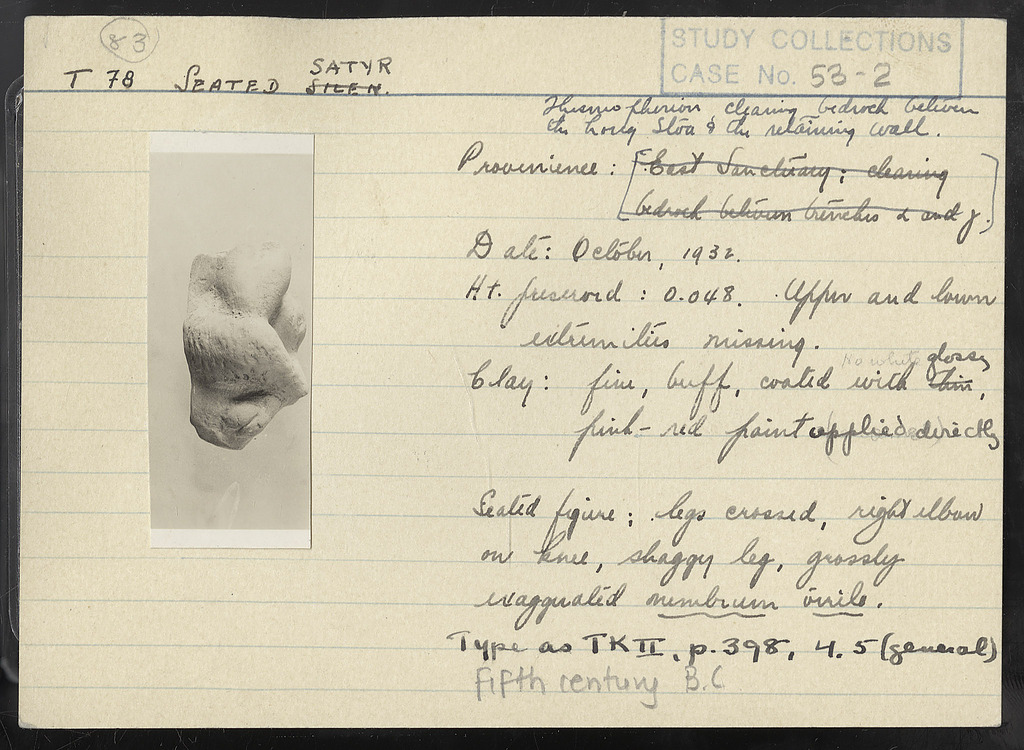 83
STUDY COLLECTIONS
CASE No. 53-2
T 78 SEATED SILEN.
SATYR
Thesmophorion clearing bedrock between
the Long Stoa & the retaining wall.
Provenience: [East Sanctuary; clearing
bedrock between trenches α and γ.]
Date: October, 1932.
Ht. preserved: 0.048. Upper and lower
extremities missing.
No white glossy
Clay: fine, buff, coated with thin,
pink-red paint applied directly
Seated figure; legs crossed, right elbow
on knee, shaggy leg, grossly
exaggerated membrum virile.
Type as TK II, p. 398, 4.5 (general)
Fifth century B.C